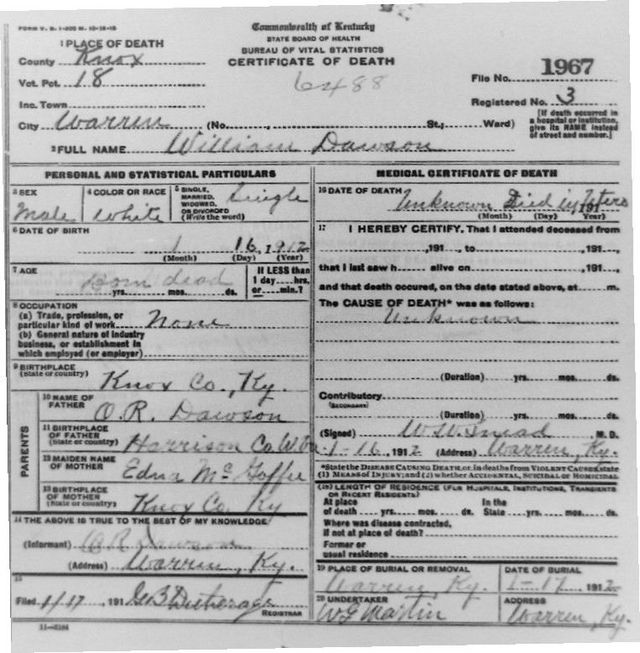 FORM V. S. 1-200 M. 10-16-15
Commonwealth of Kentucky
STATE BOARD OF HEALTH
BUREAU OF VITAL STATISTICS
CERTIFICATE OF DEATH
6488
1 PLACE OF DEATH
County Knox
Vot. Pct. 18
Inc. Town
City Warren (No. St., Ward)
File No. 1967
Registered No. 3
[If death occurred in a hospital or institution, give its NAME instead of street and number.]
2 FULL NAME William Dawson
PERSONAL AND STATISTICAL PARTICULARS
3 SEX Male
4 COLOR OR RACE White
5 SINGLE, MARRIED, WIDOWED, OR DIVORCED (Write the word) Single
6 DATE OF BIRTH
1 16, 1912
(Month) (Day) (Year)
7 AGE
Born dead
yrs. mos. ds.
If LESS than 1 day hrs. or min.?
8 OCCUPATION
(a) Trade, profession, or particular kind of work None
(b) General nature of industry business, or establishment in which employed (or employer)
9 BIRTHPLACE (State or country)
Knox Co., Ky.
PARENTS
10 NAME OF FATHER
O. R. Dawson
11 BIRTHPLACE OF FATHER (State or country)
Harrison Co. W. Va
12 MAIDEN NAME OF MOTHER
Edna
13 BIRTHPLACE OF MOTHER (State or country)
Knox Co. Ky
14 THE ABOVE IS TRUE TO THE BEST OF MY KNOWLEDGE
(Informant) O R Dawson
(Address) Warren, Ky.
15
Filed 1/17, 191 G. B.
REGISTRAR
11-3184
MEDICAL CERTIFICATE OF DEATH
16 DATE OF DEATH Unknown Died in 191
(Month) (Day) (Year)
17 I HEREBY CERTIFY, That I attended deceased from
, 191 , to , 191 ,
that I last saw h alive on , 191 ,
and that death occured, on the date stated above, at m.
The CAUSE OF DEATH* was as follows:
Unknown
(Duration) yrs. mos. ds.
Contributory
(SECONDARY)
(Duration) yrs. mos. ds.
(Signed) M. D.
1-16, 1912 (Address) Warren, Ky.
*State the DISEASE CAUSING DEATH, or, in deaths from VIOLENT CAUSES, state (1) MEANS OF INJURY; and (2) whether ACCIDENTAL, SUICIDAL or HOMICIDAL.
(18) LENGTH OF RESIDENCE (FOR HOSPITALS, INSTITUTIONS, TRANSIENTS OR RECENT RESIDENTS)
At place of death yrs. mos. ds. In the State yrs. mos. ds.
Where was disease contracted, if not at place of death?
Former or usual residence
19 PLACE OF BURIAL OR REMOVAL
Warren, Ky.
DATE OF BURIAL
1-17, 1912
20 UNDERTAKER
W G Martin
ADDRESS
Warren, Ky.